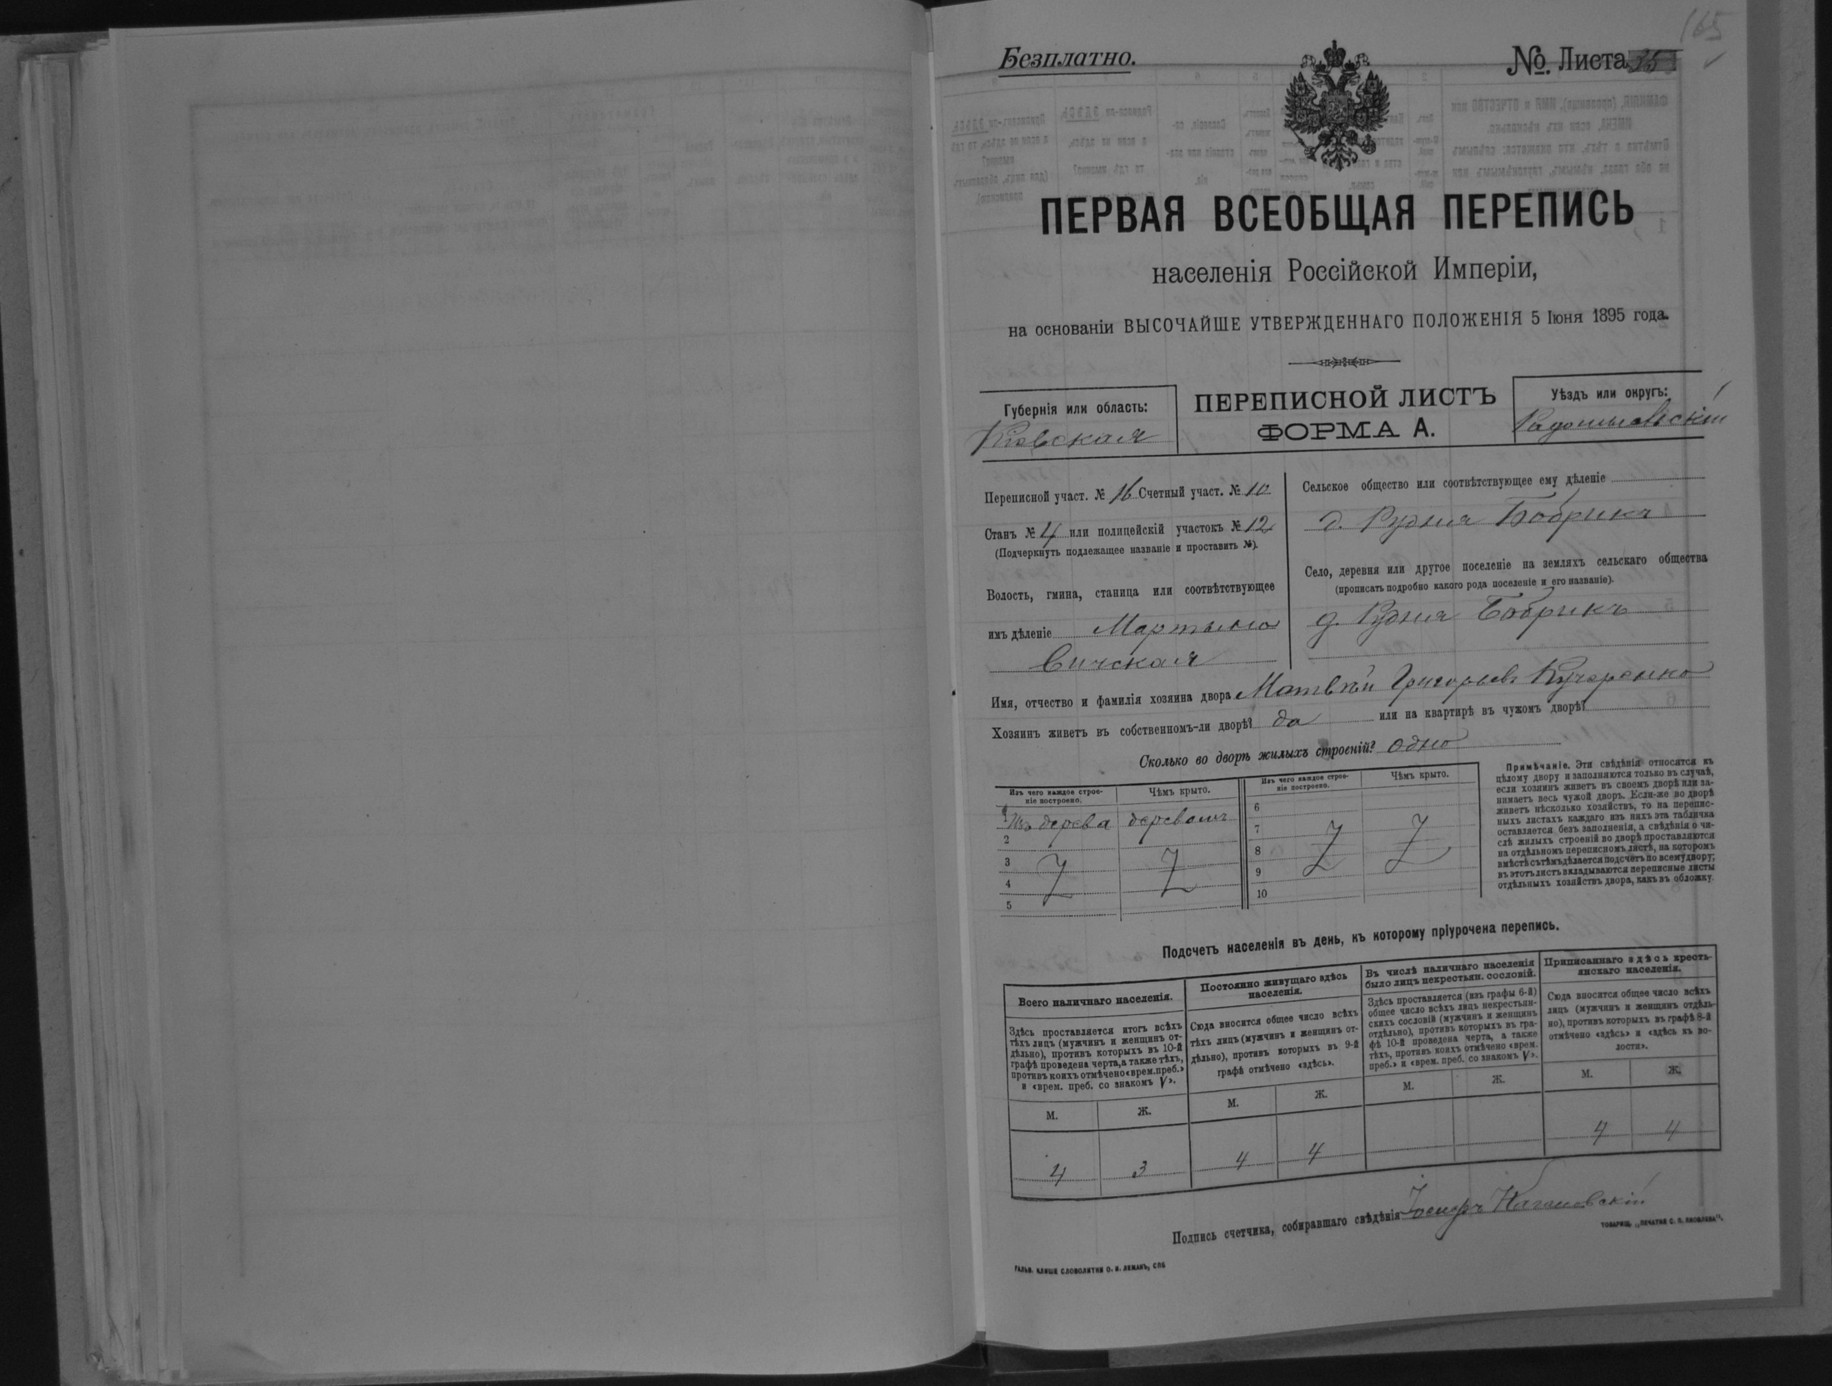 165
Безплатно.
№ Листа 35
ПЕРВАЯ ВСЕОБЩАЯ ПЕРЕПИСЬ
населенія Россійской Имперіи,
на основаніи ВЫСОЧАЙШЕ УТВЕРЖДЕННАГО ПОЛОЖЕНІЯ 5 Іюня 1895 года.
Губернія или область:
Кіевская
ПЕРЕПИСНОЙ ЛИСТЪ
ФОРМА А.
Уѣздъ или округъ:
Радомысльскій
Переписной участ. № 16 Счетный участ. № 10
Станъ № 4 или полицейскій участокъ № 12
(Подчеркнуть подлежащее названіе и проставить №).
Волость, гмина, станица или соотвѣтствующее
имъ дѣленіе Мартыно
вичская
Сельское общество или соотвѣтствующее ему дѣленіе
д. Рудня Бобрикъ
Село, деревня или другое поселеніе на земляхъ сельскаго общества
(прописать подробно какого рода поселеніе и его названіе).
д. Рудня Бобрикъ
Имя, отчество и фамилія хозяина двора Матвѣй Григорьевъ Кучеренко
Хозяинъ живетъ въ собственномъ-ли дворѣ? да или на квартирѣ въ чужомъ дворѣ?
Сколько во дворѣ жилыхъ строеній? одно
Изъ чего каждое строе-
ніе построено.
Чѣмъ крыто.
1 Изъ дерева деревомъ
2
3
4
5
Изъ чего каждое строе-
ніе построено.
Чѣмъ крыто.
6
7
8
9
10
Примѣчаніе. Эти свѣдѣнія относятся къ
цѣлому двору и заполняются только въ случаѣ,
если хозяинъ живетъ въ своемъ дворѣ или за-
нимаетъ весь чужой дворъ. Если-же во дворѣ
живетъ нѣсколько хозяйствъ, то на перепис-
ныхъ листахъ каждаго изъ нихъ эта табличка
оставляется безъ заполненія, а свѣдѣнія о чи-
слѣ жилыхъ строеній во дворѣ проставляются
на отдѣльномъ переписномъ листѣ, на которомъ
вмѣстѣ съ тѣмъ дѣлается подсчетъ по всему двору;
въ этотъ листъ вкладываются переписные листы
отдѣльныхъ хозяйствъ двора, какъ въ обложку.
Подсчетъ населенія въ день, къ которому пріурочена перепись.
Всего наличнаго населенія.
Здѣсь проставляется итогъ всѣхъ
тѣхъ лицъ (мужчинъ и женщинъ от-
дѣльно), противъ которыхъ въ 10-й
графѣ проведена черта, а также тѣхъ,
противъ коихъ отмѣчено «врем. преб.»
и «врем. преб. со знакомъ V».
М. Ж.
4 3
Постоянно живущаго здѣсь
населенія.
Сюда вносится общее число всѣхъ
тѣхъ лицъ (мужчинъ и женщинъ от-
дѣльно), противъ которыхъ въ 9-й
графѣ отмѣчено «здѣсь».
М. Ж.
4 4
Въ числѣ наличнаго населенія
было лицъ некрестьян. сословій.
Здѣсь проставляется (изъ графы 6-й)
общее число всѣхъ лицъ некрестьян-
скихъ сословій (мужчинъ и женщинъ
отдѣльно), противъ которыхъ въ гра-
фѣ 10-й проведена черта, а также
тѣхъ, противъ коихъ отмѣчено «врем.
преб.» и «врем. преб. со знакомъ V».
М. Ж.
Приписаннаго здѣсь кресть-
янскаго населенія.
Сюда вносится общее число всѣхъ
лицъ (мужчинъ и женщинъ отдѣль-
но), противъ которыхъ въ графѣ 8-й
отмѣчено «здѣсь» и «здѣсь къ во-
лости».
М. Ж.
4 4
Подпись счетчика, собиравшаго свѣдѣнія Іосифъ
ГАЛЬВ. КЛИШЕ СЛОВОЛИТНИ О. И. ЛЕМАНЪ, СПБ
ТОВАРИЩ. „ПЕЧАТНЯ С. П. ЯКОВЛЕВА“.